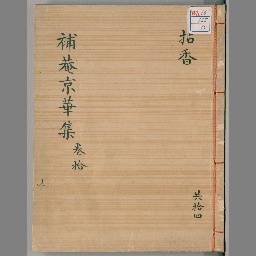 拈香
共拾四
補菴京華集 巻拾